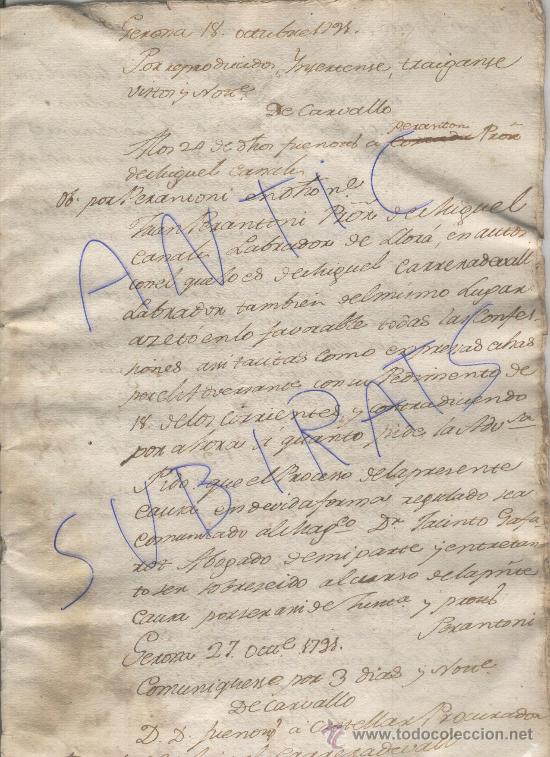 Gerona 18. octubre 1791.
Por reproducidos, Insertense, traiganse
vistos y Note.
De Carvallo
Perantoni
A los 24 de dhos a Pror
de Miguel Canals
por Perantoni
Juan Perantoni Pror. de Miguel
Canals Labrador de Llorá, en autos
con el que lo es de Miguel Carreradevall
Labrador tambien del mismo Lugar
azetó en lo favorable todas las Confes
siones asi tacitas como expresas echas
por el Adversante con su Pedimento de
18. de los corrientes, y contradiciendo
por ahora á quanto pide la Adversa
Pido que el Proceso de la presente
Causa en devida forma regulado sea
comunicado al Magco. Dr. Jacinto
Abogado de mi parte y entretan
to ser sobreseido al curso de la pnte
Causa por ser asi de Justa. y
Perantoni
Gerona 27. Octe. 1791.
Comuniquese por 3 dias y Note.
De Carvallo
D. D. a Castellar Procurador
Carreradevall
ANTIC
SUBIRATS
todocoleccion.net